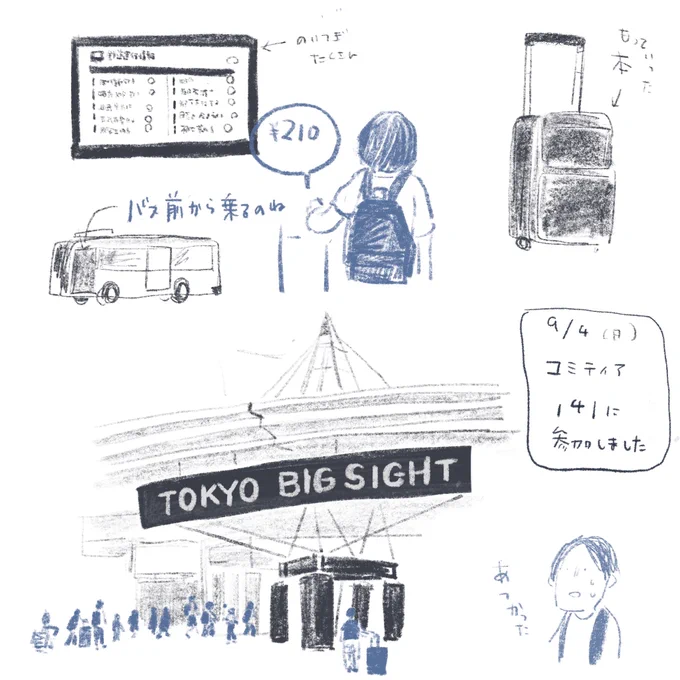 のりつぎ
たくさん
もっていった
本
¥210
バス前から乗るのね
9/4(日)
コミティア
141に
参加しました
TOKYO BIG SIGHT
あつかった